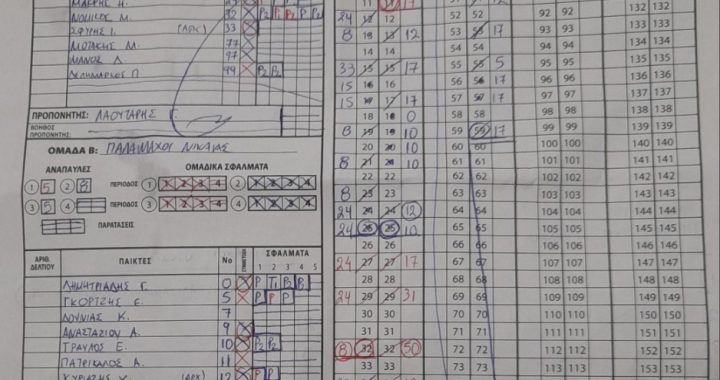 ΝΟΜΙΚΟΣ Μ. 32 P2 P1 P2 P P
ΣΦΥΡΗΣ Ι. (ΑΡΧ) 33
ΜΟΤΑΚΗΣ Μ. 77
ΜΑΝΟΣ Δ. 97
99 P2 P2
ΠΡΟΠΟΝΗΤΗΣ: ΛΑΟΥΤΑΡΗΣ Γ.
ΒΟΗΘΟΣ
ΠΡΟΠΟΝΗΤΗΣ:
ΟΜΑΔΑ Β: ΠΑΛΑΙΜΑΧΟΙ ΝΙΚΑΙΑΣ
ΑΝΑΠΑΥΛΕΣ ΟΜΑΔΙΚΑ ΣΦΑΛΜΑΤΑ
1 5 2 8 ΠΕΡΙΟΔΟΣ 1 1 2 3 4 2 1 2 3 4
3 5 4 ΠΕΡΙΟΔΟΣ 3 1 2 3 4 4 1 2 3 4
ΠΑΡΑΤΑΣΕΙΣ
ΑΡΙΘ. ΔΕΛΤΙΟΥ ΠΑΙΚΤΕΣ No ΣΦΑΛΜΑΤΑ
1 2 3 4 5
ΔΗΜΗΤΡΙΑΔΗΣ Γ. 0 P T1 P2 P2
ΓΚΟΡΤΖΗΣ Ε. 5 P P P
ΔΟΥΝΙΑΣ Κ. 7
ΑΝΑΣΤΑΣΙΟΥ Α. 9
ΤΡΑΥΛΟΣ Ε. 10 P2 P2
ΠΑΤΡΙΚΑΛΟΣ Α. 11
ΚΥΡΙΑΖΗΣ Χ. (ΑΡΧ) 12 P P
11 17
24 12 12 52 52 92 92 132 132
8 13 13 12 53 53 17 93 93 133 133
14 14 54 54 94 94 134 134
33 15 15 17 55 55 5 95 95 135 135
15 16 16 56 56 17 96 96 136 136
15 17 17 17 57 57 17 97 97 137 137
18 18 0 58 58 98 98 138 138
8 19 19 10 59 59 17 99 99 139 139
20 20 10 60 60 100 100 140 140
8 21 21 10 61 61 101 101 141 141
22 22 62 62 102 102 142 142
8 23 23 63 63 103 103 143 143
24 24 24 12 64 64 104 104 144 144
24 25 25 10 65 65 105 105 145 145
26 26 66 66 106 106 146 146
24 27 27 17 67 67 107 107 147 147
28 28 68 68 108 108 148 148
24 29 29 31 69 69 109 109 149 149
30 30 70 70 110 110 150 150
31 31 71 71 111 111 151 151
8 32 32 50 72 72 112 112 152 152
33 33 73 73 113 113 153 153